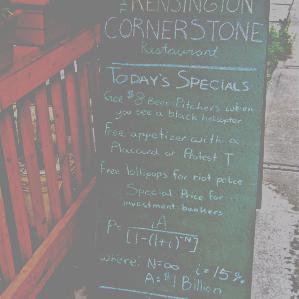 THE
KENSINGTON
CORNERSTONE
Restaurant
TODAY'S SPECIALS
Get $8 Beer Pitchers when
you see a black helicopter
Free appetizer with a
Placard or Protest T
Free lollipops for riot police
Special Price for
investment bankers
P= iA
[1-(1+i)^-N]
where: N=∞ i=15%
A=$1 Billion